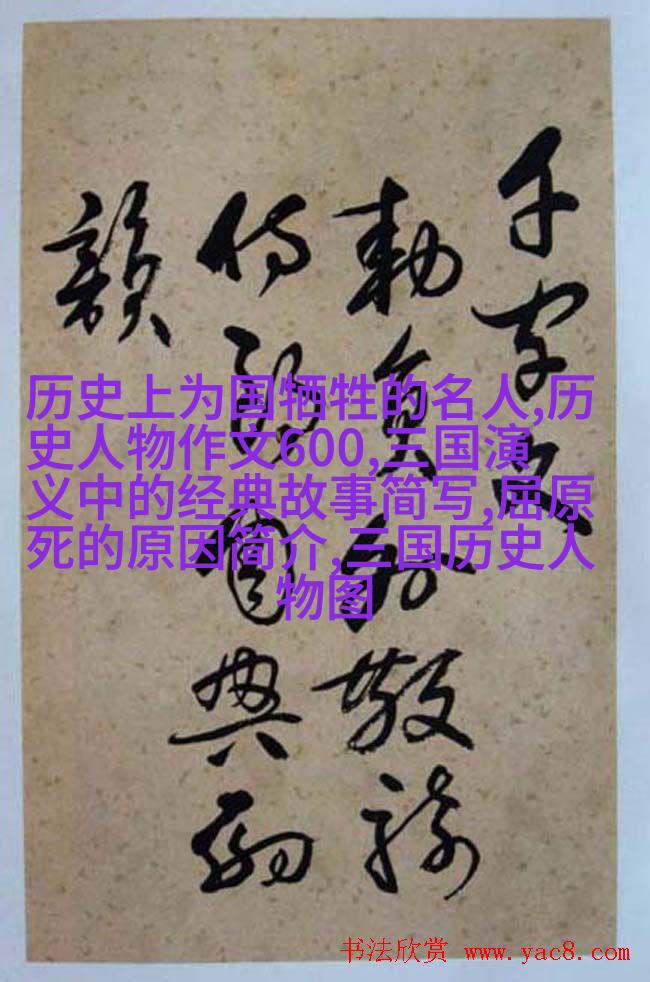 千字文
勅員外散騎
侍郎周興嗣
韻
历史上为国牺牲的名人,历
史人物作文600,三国演
义中的经典故事简写,屈原
死的原因简介,三国历史人
物图
书法欣赏 www.yac8.com